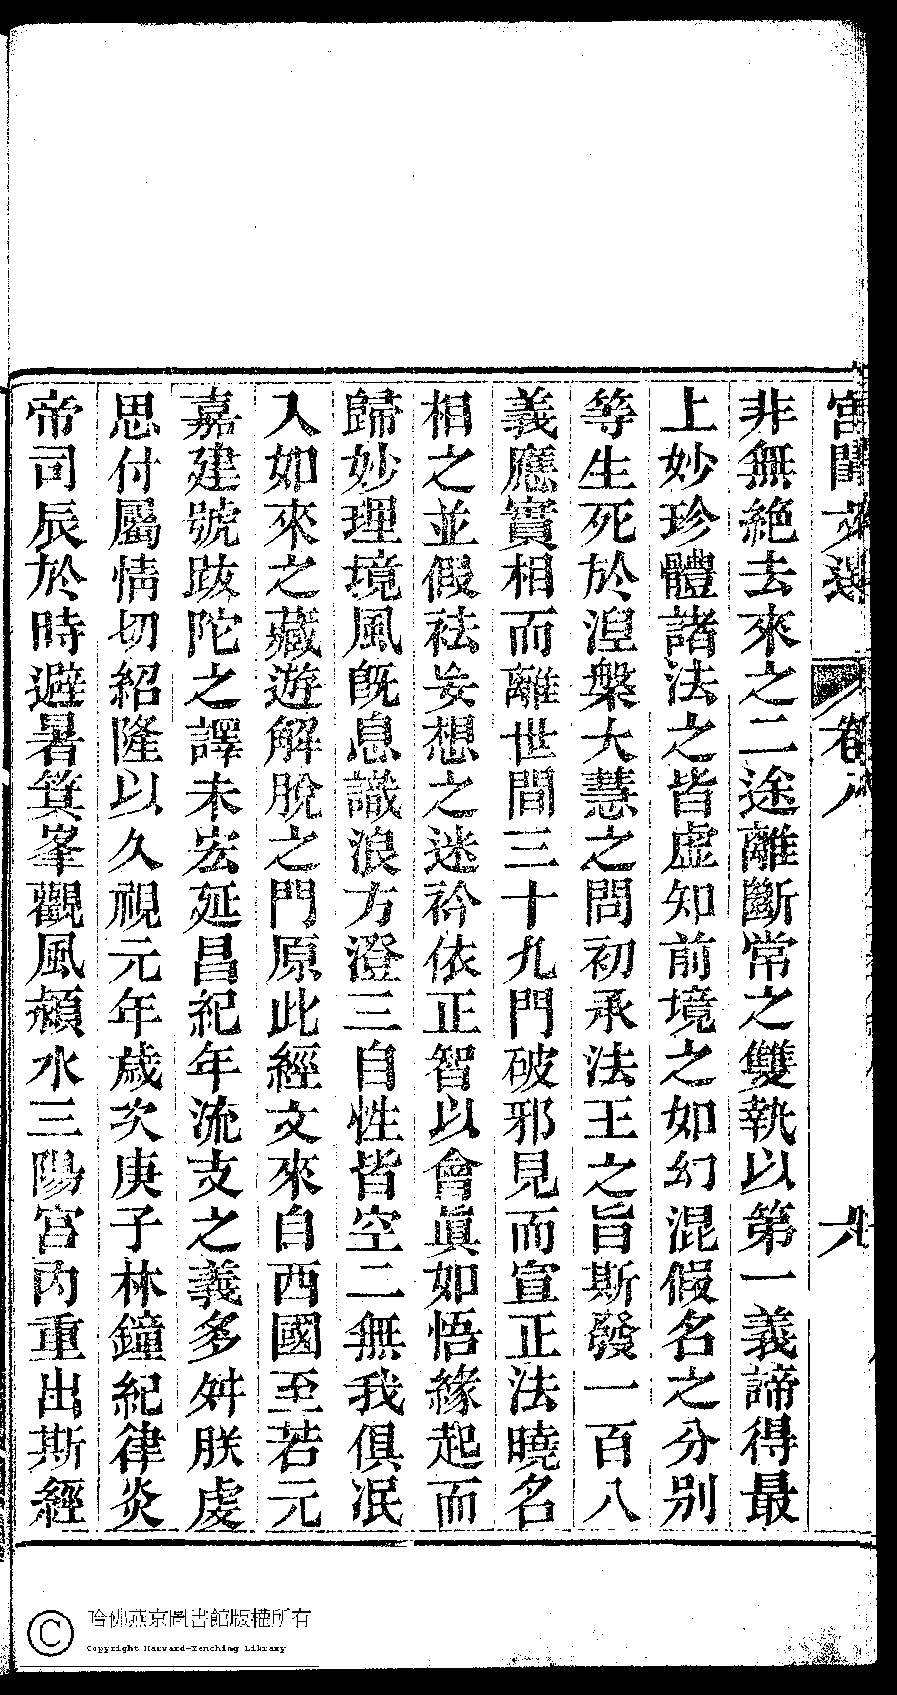 宮閨文選 卷八 六
非無絶去來之二途離斷常之雙執以第一義諦得最
上妙珍體諸法之皆虚知前境之如幻混假名之分別
等生死於湼槃大慧之問初承法王之旨斯發一百八
義應實相而離世間三十九門破邪見而宣正法曉名
相之並假祛妄想之迷衿依正智以會眞如悟緣起而
歸妙理境風旣息識浪方澄三自性皆空二無我俱泯
入如來之藏遊解脫之門原此經文來自西國至若元
嘉建號跋陀之譯未宏延昌紀年流支之義多舛朕虔
思付屬情切紹隆以久視元年歲次庚子林鐘紀律炎
帝司辰於時避暑箕峯觀風潁水三陽宮内重出斯經
哈佛燕京圖書館版權所有
Copyright Harvard-Yenching Library